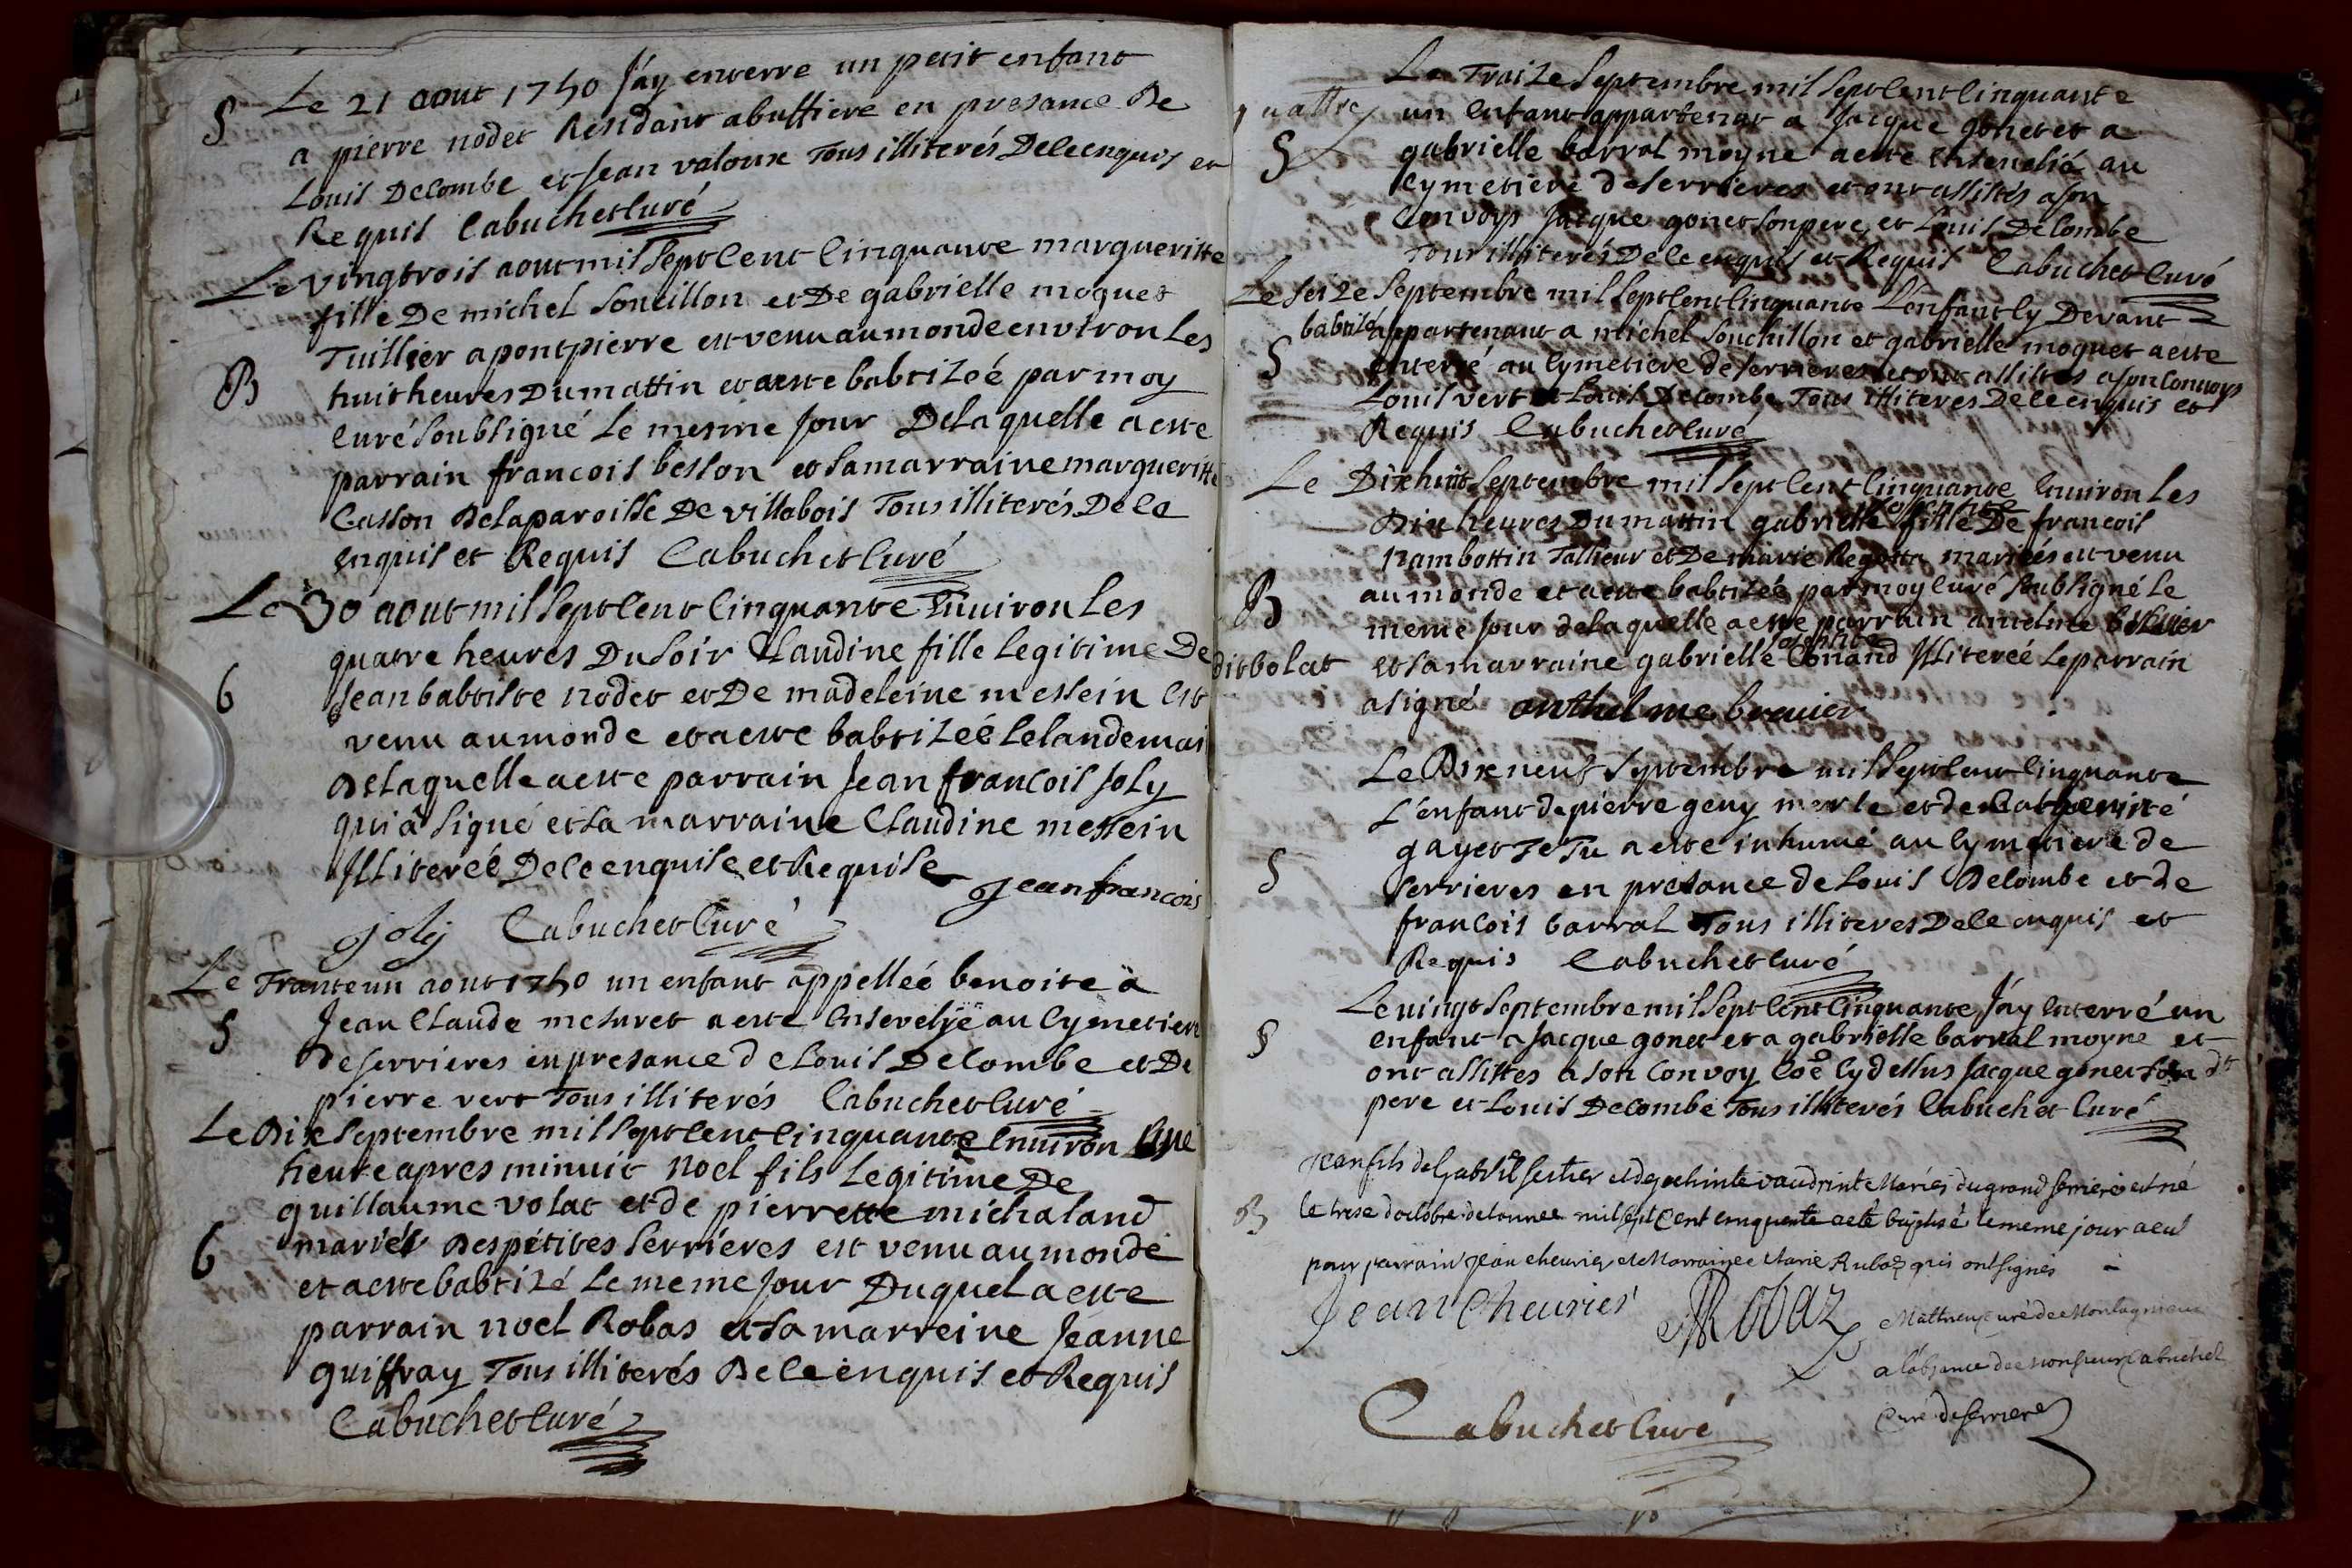 Le 21 aout 1750 J'ay enterre un petit enfant
S a pierre nodet Residant a buffiere en presance De
Louis Decombe et Jean valoux Tous illiterés De ce enquis et
Requis Cabuchet Curé
Le vingtrois aout mil Sept Cent Cinquante margueritte
fille De michel Souchillon et De gabrielle moquet
Tuillier a pontpierre est venu au monde environ Les
B huit heures Du mattin et a este babtizeé par moy
Curé Soubsigné Le mesme Jour De Laquelle a este
parrain francois besson et Sa marraine margueritte
Casson De La paroisse De villebois Tous illiterés De Ce
enquis et Requis Cabuchet Curé
Le 30 aout mil Sept Cent Cinquante Environ Les
quatre heures Du Soir Claudine fille Legitime De
6 Jean babtiste nodet et De madeleine messein Est
venu au monde et a este babtizeé Le landemain
De Laquelle a este parrain Jean francois Joly
qui à Signé et Sa marraine Claudine messein
Illitereé De Ce enquise et Requise Jean francois
Joly Cabuchet Curé
Le Trante un aout 1750 un enfant appelleé benoite à
S Jean Claude mesuret a este Ensevelie au Cymetiere
de serrieres en presance de Louis Decombe et De
pierre vert Tous illiterés Cabuchet Curé
Le Dix Septembre mil Sept cent Cinquante Environ Une
heure apres minuit noel fils Legitime De
guillaume volat et de pierrette michaland
6 mariés Des petites Serrieres est venu au monde
et a este babtizé Le meme Jour Duquel a este
parrain noel Robas et Sa marreine Jeanne
guiffray Tous illiterés De Ce enquis et Requis
Cabuchet Curé
Le Traize Septembre mil Sept Cent Cinquante
quattre un Enfant appartenat a Jacque gonet et a
S gabrielle barral moyne a este Ensevelié au
Cymetiere de serrieres et ont assistés a son
Convoys Jacque gonet Son pere, et Louis Decombe
Tous illiterés De Ce enquis et Requis Cabuchet Curé
Le Seize Septembre mil Sept Cent Cinquante L'enfant Cy Devant
babtizé appartenant a michel Souchillon et gabrielle moquet a este
S enterré au Cymetiere de serrieres et ont assistés a son Convoys
Louis vert et Louis Decombe Tous illiteres De Ce enquis et
Requis Cabuchet Curé
Le Dix huit Septembre mil Sept Cent Cinquante Environ Les
Dix heures Du mattin gabrielle fille De francois
nambottin Tallieur et De marie mariés est venu
B au monde et a este babtizeé par moy Curé Soubsigné Le
meme Jour de Laquelle a este parrain
dit bolat et Sa marraine gabrielle Illitereé Le parrain
a signé anthel me breuier
Le Dix neuf Septembre mil Sept Cent Cinquante
L'enfant de pierre geny merle et de
gayet a este inhumé au Cymetiere de
S Serrieres en presance de Louis Decombe et de
francois barral Tous illiteres De Ce enquis et
Requis Cabuchet Curé
Le vingt Septembre mil Sept Cent Cinquante, J'ay Enterré un
S enfant a Jacque gonet et a gabrielle barral moyne et
ont assistes a son Convoy Cy dessus Jacque gonet Son dt
pere et Louis Decombe Tous illiterés Cabuchet Curé
Jean fils de Gabriel sestier et de vaudrinte Mariés du grand serriere est né
B le trese d'octobre de lannee mil sept Cent cinquente a eté baptisé le meme jour a eu
pour parrain Jean cheurier et Marraine Marie Rubaz qui ont signés
Jean Cheurier MRobaz Matthieu curé de Montagnieu
a l'absance de monsieur Cabuchet
Curé de serriere
Cabuchet Curé